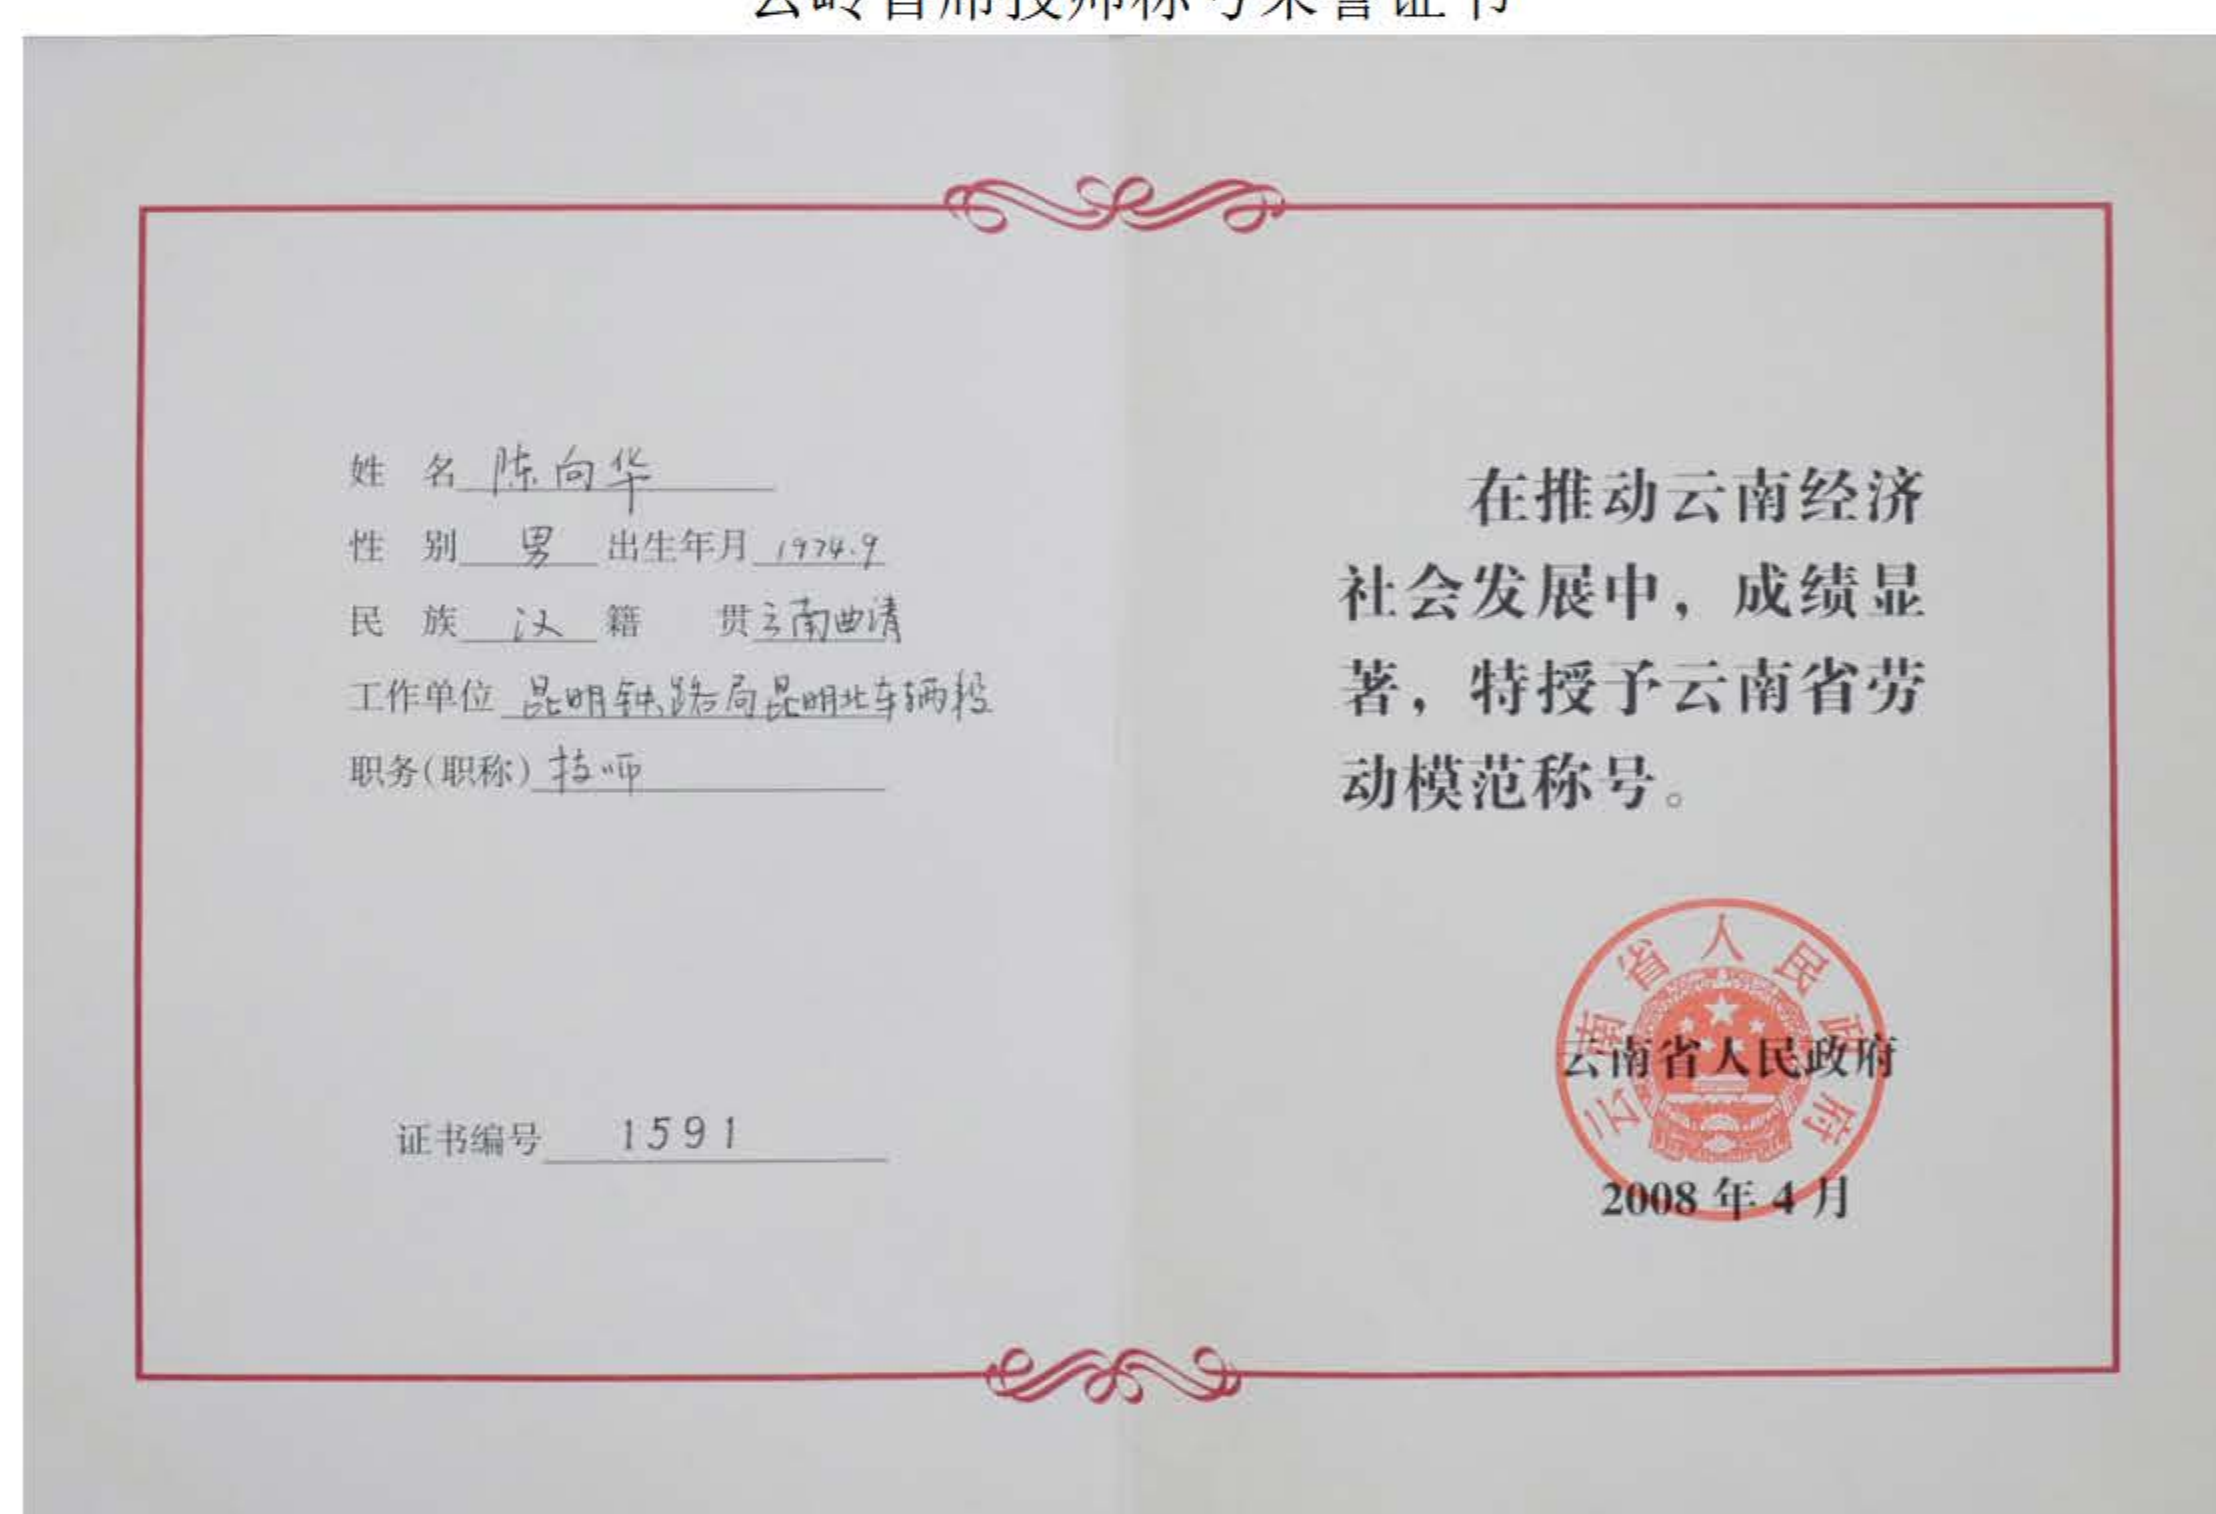 云岭首席技师称号荣誉证书
姓 名 陈向华
性 别 男 出生年月 1974.9
民 族 汉 籍 贯 云南曲靖
工作单位 昆明铁路局昆明北车辆段
职务(职称) 技师
证书编号 1591
在推动云南经济
社会发展中，成绩显
著，特授予云南省劳
动模范称号。
云南省人民政府
云南省人民政府
2008 年 4 月